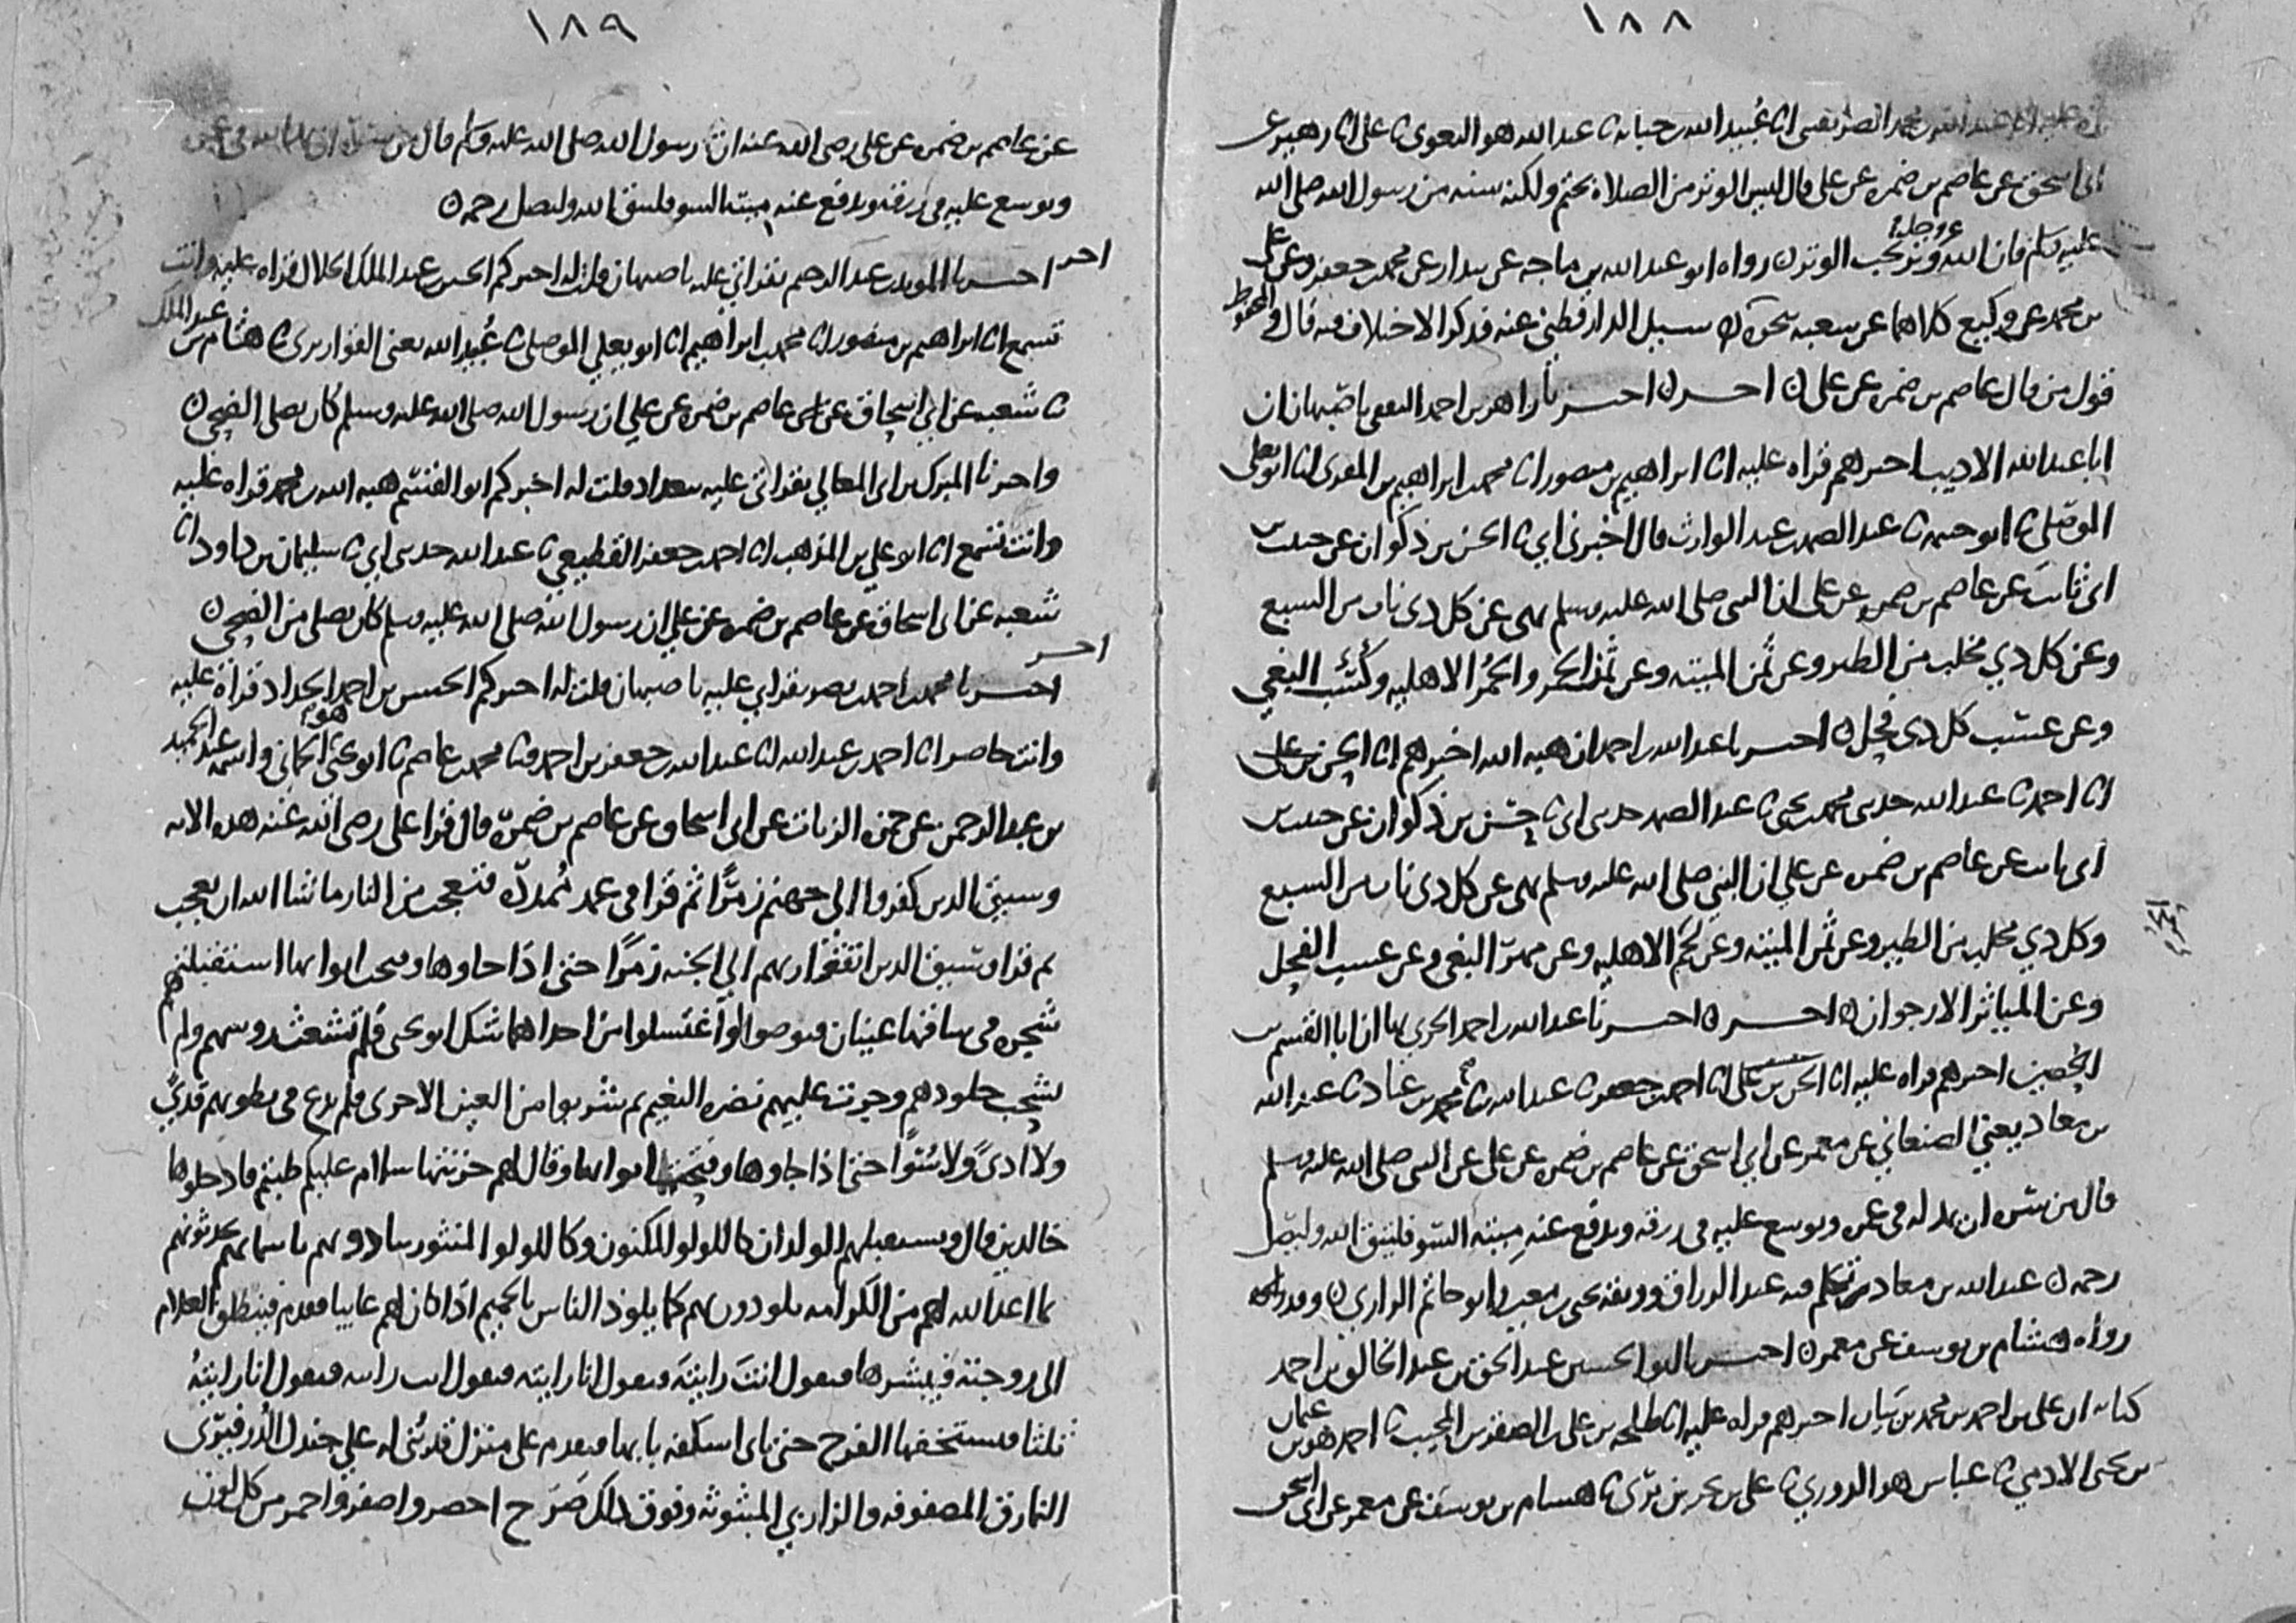 ١٨٨
عبد الله بن محمد الصريفيني انا عبيد الله بن حبابة ثنا عبد الله هو البغوي ثنا علي انا زهير عن
ابي اسحق عن عاصم بن ضمره عن علي قال ليس الوتر من الصلاة بحتم ولكنه سنه من رسول الله صلى الله
عليه وسلم فان الله عز وجل وتر يحب الوتر ن رواه ابو عبد الله بن ماجه عن بندار عن محمد بن جعفر وعن علي
بن محمد عن وكيع كلاهما عن شعبه نحوه ن سيل الدارقطني عنه فذكر الاختلاف فيه قال والمحفوظ
قول من قال عاصم بن ضمره عن علي ن احر ن اخبرنا زاهر بن احمد الثقفي باصبهان ان
ابا عبد الله الاديب اخبرهم قراه عليه انا ابراهيم بن منصور انا محمد بن ابراهيم بن المقري انا ابو يعلى
الموصلي ثنا ابو خيثمه ثنا عبد الصمد بن عبد الوارث قال اخبرني ابي ثنا الحسن بن ذكوان عن حبيب بن
ابي ثابت عن عاصم بن ضمره عن علي ان النبي صلى الله عليه وسلم نهى عن كل ذي ناب من السبع
وعن كل ذي مخلب من الطير وعن ثمن الميته وعن ثمن الخمر والحمر الاهليه وكسب البغي
وعن عسب كل ذي فحل ن اخبرنا عبد الله بن احمد ان هبه الله اخبرهم انا الحسن بن علي
انا احمد ثنا عبد الله حدثني محمد بن يحيى ثنا عبد الصمد حدثني ابي ثنا حسن بن ذكوان عن حبيب بن
ابي ثابت عن عاصم بن ضمره عن علي ان النبي صلى الله عليه وسلم نهى عن كل ذي ناب من السبع
وكل ذي مخلب من الطير وعن ثمن الميته وعن لحم الحمر الاهليه وعن مهر البغي وعن عسب الفحل
وعن المياثر الارجوان ن احر ن اخبرنا عبد الله بن احمد الحربي بها ان ابا القسم بن
الحصين اخبرهم قراه عليه انا الحسن بن علي انا احمد بن جعفر ثنا عبد الله ثنا محمد بن عباد ثنا عبد الله
بن معاذ يعني الصنعاني عن معمر عن ابي اسحق عن عاصم بن ضمره عن علي عن النبي صلى الله عليه وسلم
قال من سره ان يمد له في عمره ويوسع عليه في رزقه ويدفع عنه ميته السو فليتق الله وليصل
رحمه ن عبد الله بن معاذ تكلم فيه عبد الرزاق ووثقه يحيى بن معين وابو حاتم الرازي ن وقد
رواه هشام بن يوسف عن معمر ن اخبرنا ابو الحسين عبد الحق بن عبد الخالق بن احمد
كتابه ان علي بن احمد بن محمد بن بيان اخبرهم قراه عليه انا طلحه بن علي بن الصقر ثنا احمد هو بن عثمان
بن يحيى الادمي ثنا عباس هو الدوري ثنا علي بن بحر بن بري ثنا هشام بن يوسف عن معمر عن ابي اسحق
١٨٩
عن عاصم بن ضمره عن علي رضي الله عنه ان رسول الله صلى الله عليه وسلم قال من سره ان يمد الله في عمره
ويوسع عليه في رزقه ويدفع عنه ميته السو فليتق الله وليصل رحمه ن
احر اخبرنا المويد بن عبد الرحيم بقراتي عليه باصبهان قلت له اخبركم الحسين بن عبد الملك الخلال قراه عليه وانت
تسمع انا ابراهيم بن منصور انا محمد بن ابراهيم انا ابو يعلي الموصلي ثنا عبيد الله يعني القواريري ثنا هشام بن عبد الملك
ثنا شعبه عن ابي اسحاق عن عاصم بن ضمره عن علي ان رسول الله صلى الله عليه وسلم كان يصلي الضحى ن
واخبرنا المبرك بن ابي المعالي بقراتي عليه ببغداد قلت له اخبركم ابو القسم هبه الله بن محمد قراه عليه
وانت تسمع انا ابو علي بن المذهب انا احمد بن جعفر القطيعي ثنا عبد الله حدثني ابي ثنا سليمان بن داود انا
شعبه عن ابي اسحاق عن عاصم بن ضمره عن علي ان رسول الله صلى الله عليه وسلم كان يصلي من الضحى ن
احر
اخبرنا محمد بن احمد بن نصر بقراتي عليه باصبهان قلت له اخبركم الحسن بن احمد الحداد قراة عليه
وانت حاضر انا احمد بن عبد الله انا عبد الله بن جعفر بن احمد ثنا محمد بن عاصم ثنا ابو يحيى هو الحماني واسمه عبد الحميد
بن عبد الرحمن عن حمزه الزيات عن ابي اسحاق عن عاصم بن ضمرة قال قرا علي رضي الله عنه هذه الايه
وسيق الذين كفروا الى جهنم زمرا ثم قرا في عمد ممددة فتعجب من النار ما شا الله ان يعجب
ثم قرا وسيق الذين اتقوا ربهم الي الجنه زمرا حتى اذا جاوها وفتحت ابوابها استقبلتهم
شجره في ساقها عينان فتوضوا او اغتسلوا من احداهما شك ابو يحيى فلم تشعث روسهم ولم
تشحب جلودهم وجرت عليهم نضره النعيم ثم شربوا من العين الاخرى فلم يدع في بطونهم قذى
ولا اذى ولا سوا حتى اذا جاوها وفتحت ابوابها وقال لهم خزنتها سلام عليكم طبتم فادخلوها
خالدين قال ويستقبلهم الولدان كاللولو المكنون وكاللولو المنثور ينادونهم باسمايهم يحدثونهم
بما اعد الله لهم من الكرامه يلوذون بهم كما يلوذ الناس بالحميم اذا كان لهم غايبا فقدم فينطلق الغلام
الى زوجته فيبشرها فيقول انت رايته فيقول انا رايته فيقول انت رايته فيقول انا رايته
ثلثا فيستخفها الفرح حتى تاتي اسكفه بابها فيقدم على منزل قد بني له علي جندل الدر فيرى
النمارق المصفوفه والزرابي المبثوثه وفوق ذلك صرح اخضر واصفر واحمر من كل لون